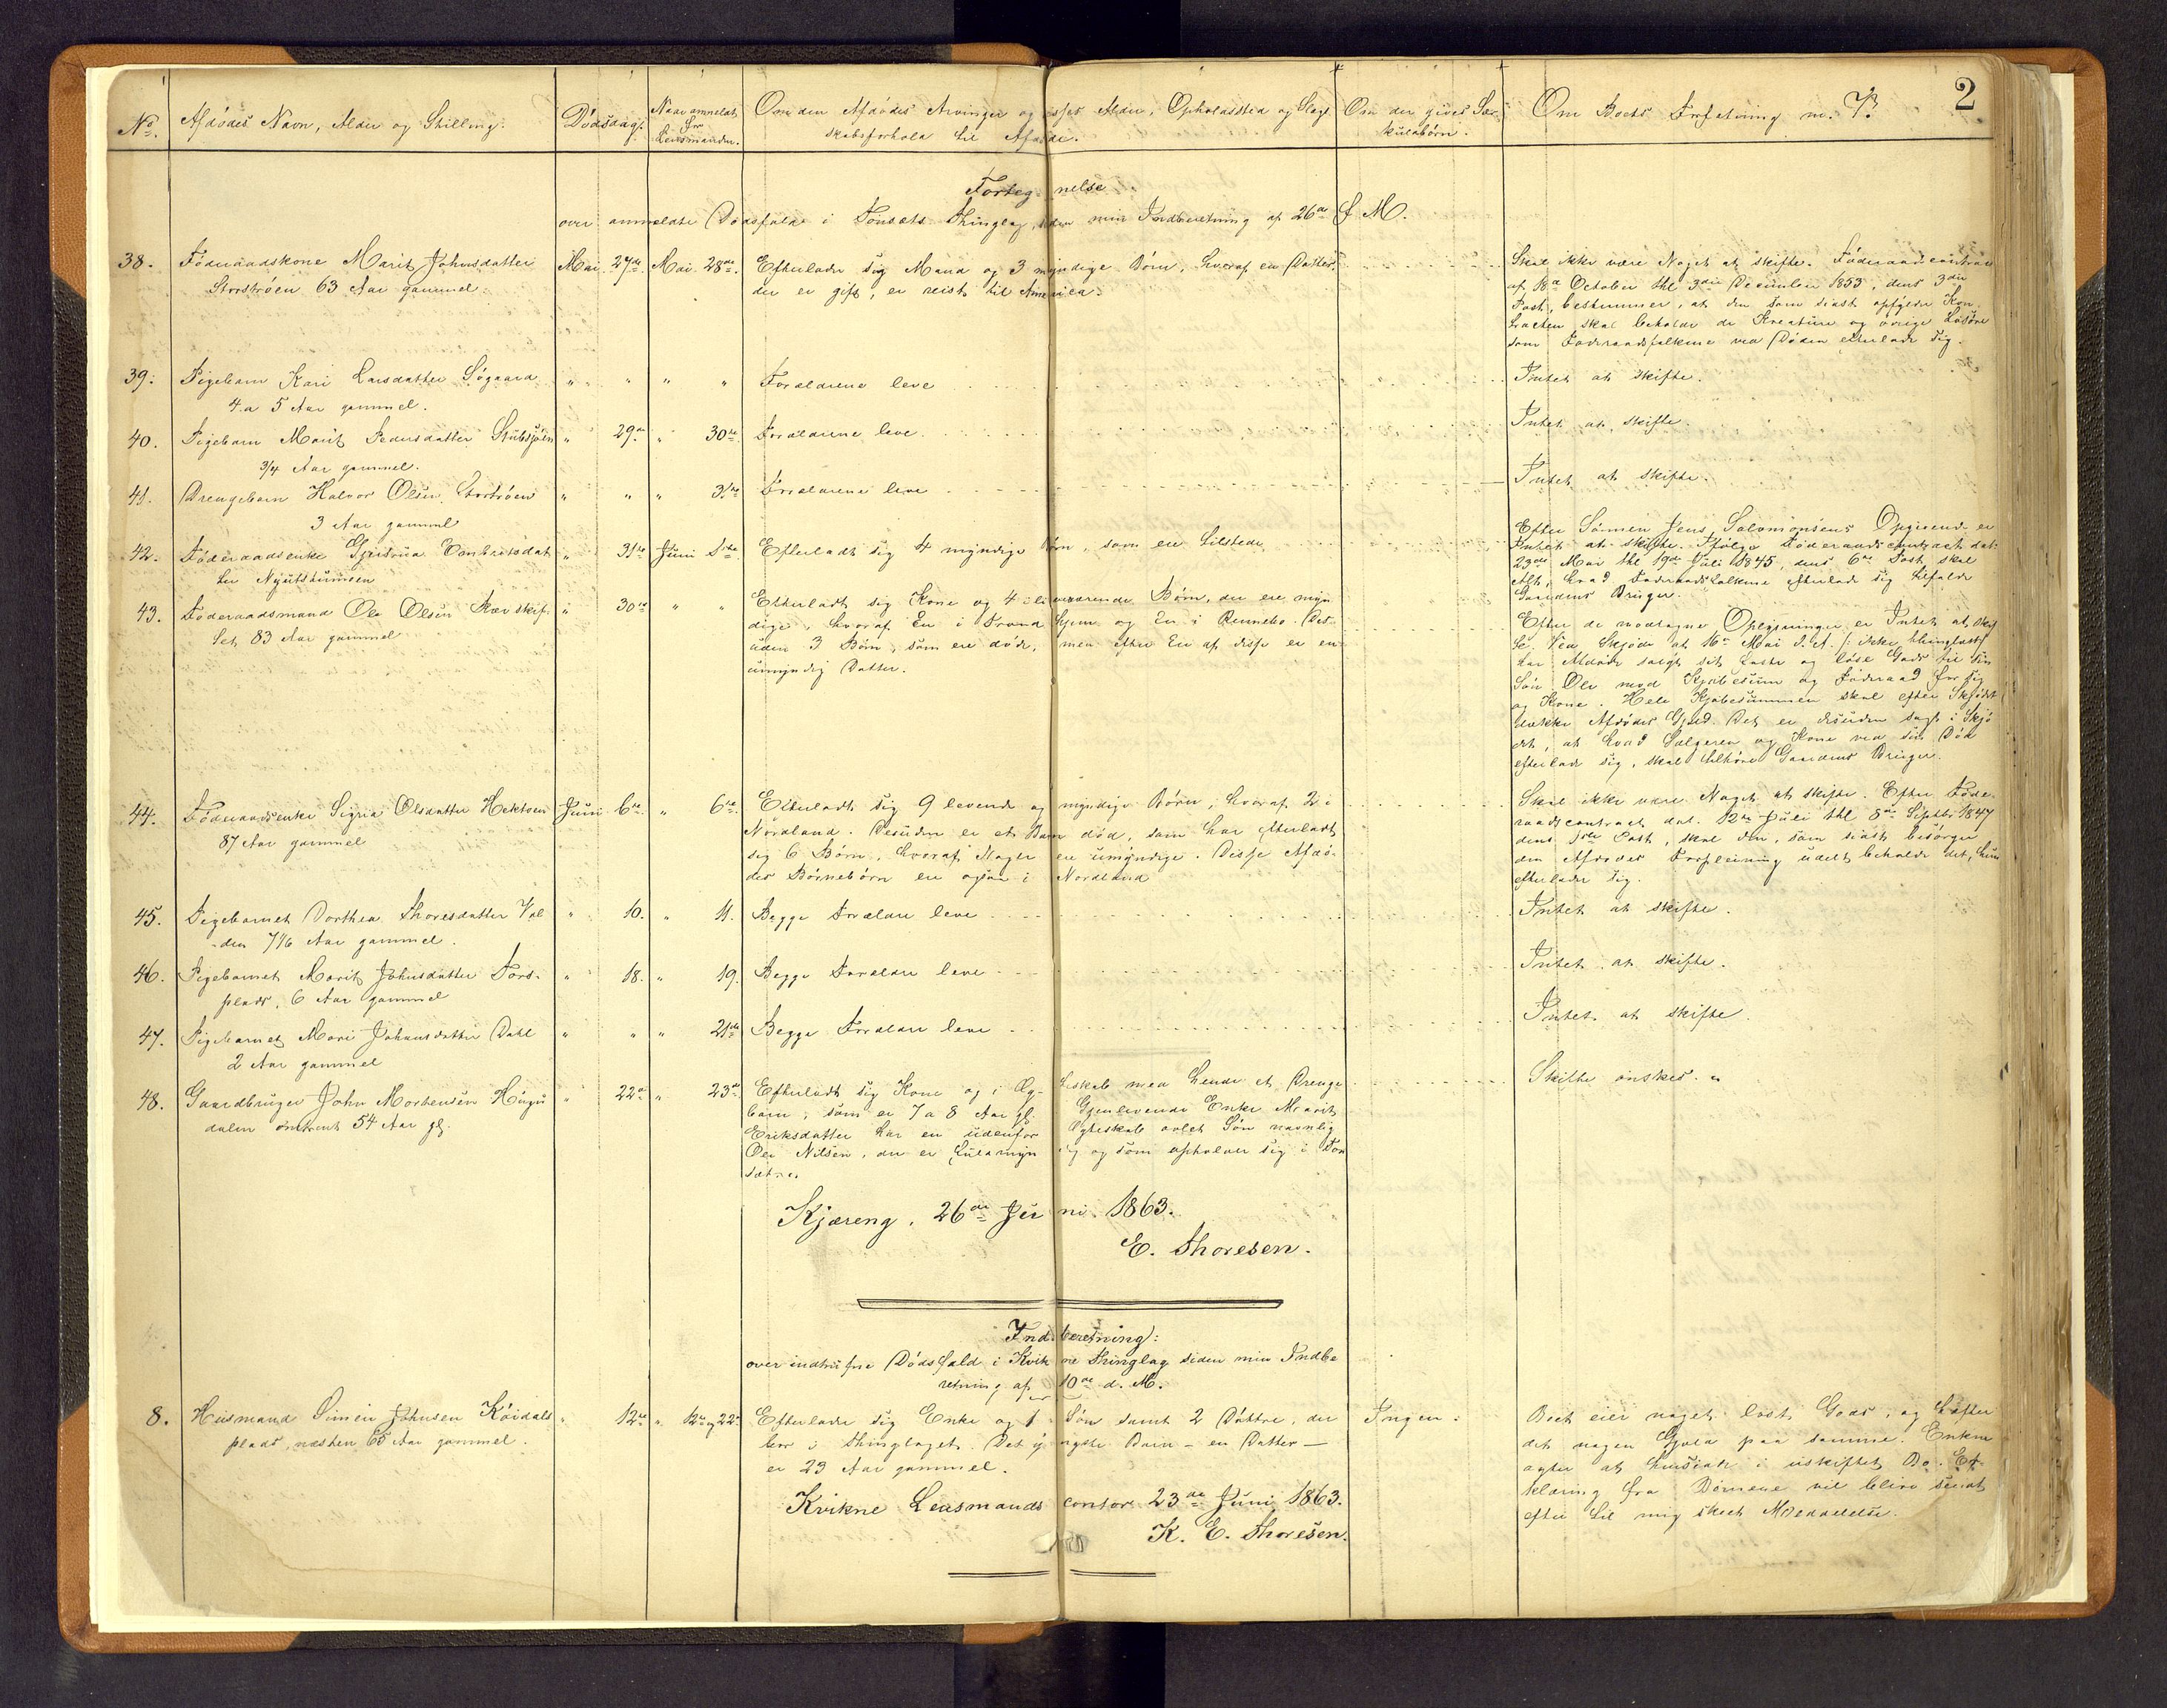 2
No. Afdødes Navn, Alder og Stilling. Dødsdag. Naar anmeldt for Lensmanden. Om den Afdødes Arvinger og disses Alder, Opholdssted og Slægtskabsforhold til Afdøde. Om der gives Særkuldbørn. Om Boets Forfatning m. V.
Fortegnelse
over anmeldte Dødsfald i Tønsets Thinglag, siden min Indberetning af 26de f. M.
38. Føderaadskone Marit Johnsdatter
Storstrøen 63 Aar gammel.
Mai 27de Mai 28de
Efterlader sig Mand og 3 myndige Børn, hvoraf en Datter,
der er gift, er reist til America.
Skal ikke være Noget at skifte. Føderaadscontract
af 18de October thl. 3die December 1853, dens 3die
Post, bestemmer, at den som sidst opfylder Kon-
tracten skal beholde de Kreature og øvrige Løsøre
som Føderaadsfolkene ved Døden efterlade sig.
39. Pigebarn Kari Larsdatter Søgaard
4 a 5 Aar gammel.
" " " "
Forældrene leve
Intet at skifte.
40. Pigebarn Marit Pedersdatter Stubsjøen
3/4 Aar gammel.
" 29de " 30te
Forældrene leve.
Intet at skifte.
41. Drengebarn Halvor Olsen Storstrøen
3 Aar gammel
" " " 31te
Forældrene leve
Intet at skifte.
42. Føderaadsenke Embretsdat-
ter Nyutstumoen
" 31te Juni 1ste
Efterladt sig 4 myndige Børn, som ere tilstede
Efter Sønnen Jens Salomonsens Opgivende er
Intet at skifte. Ifølge Føderaadscontract dat.
23de Mai thl. 19de Juli 1845, dens 6te Post, skal
Alt, hvad Føderaadsfolkene efterlade sig tilfalde
Gaardens Bruger.
43. Føderaadsmand Ole Olsen
83 Aar gammel
" 30te " "
Efterladt sig Kone og 4 ilivværende Børn, der ere myn
dige, hvoraf En i Trondhjem og En i Rennebo. Des-
uden 3 Børn, som ere døde, men efter En af disse er en
umyndig Datter.
Efter de modtagne Oplysninger er Intet at skif
te. Ved Skjøde af 16de Mai d. A. /: ikke thinglæst:/
har Afdøde solgt sit faste og løse Gods til sin
Søn Ole mod Kjøbesum og Føderaad for sig
og Kone. Hele Kjøbesummen skal efter Skjødet
dække Afdødes Gjæld. Det er desuden sagt i Skjø
det, at hvad Sælgeren og Kone ved sin Død
efterlade sig, skal tilhøre Gaardens Bruger.
44. Føderaadsenke Sigrid Olsdatter Hektoen
87 Aar gammel
Juni 6te " 6te
Efterladt sig 9 levende og myndige Børn, hvoraf 2 i
Nordland. Desuden er et Barn død, som har efterladt
sig 6 Børn, hvoraf Nogle ere umyndige. Disse Afdø-
des Børnebørn ere ogsaa i Nordland
Skal ikke være Noget at skifte. Efter Føde-
raadscontract dat. 12te Juli thl. 8de Septbr. 1847
dens 1ste Post, skal den, som sidst besørger
den Afdødes Forpleining udelt beholde det, hun
efterlader sig.
45. Pigebarnet Dorthea Thoresdatter Vol
-den 7/16 Aar gammel.
" 10. " 11.
Begge Forældre leve
Intet at skifte.
46. Pigebarnet Marit Johnsdatter Fors-
plads, 6 Aar gammel
" 18. " 19.
Begge Forældre leve
Intet at skifte.
47. Pigebarnet Mari Johansdatter Dahl
2 Aar gammel
" " " 21de
Begge Forældre leve
Intet at skifte.
48. Gaardbruger John Mortensen
dalen omtrent 54 Aar gl.
" 22de " 23de
Efterladt sig Kone og i Æg-teskab med hende et Drenge
barn, som er 7 a 8 Aar gl. Gjenlevende Enke Marit
Eriksdatter har en udenfor Ægteskab avlet Søn navnlig
Ole Nilsen, der er fuldmyn dig og som opholder sig i Tøn
sæt.
Skifte ønskes.
Kjæreng, 26de Juni 1863.
E. Thoresen.
Indberetning:
over indtrufne Dødsfald i Kvikne Thinglag siden min Indbe
retning af 10de d. M.
8. Husmand Simen Johnsen Kåidals
plads, næsten 65 Aar gammel.
" 12te " 12te og 22de
Efterlader sig Enke og 1 Søn samt 2 Døttre, der
bor i Thinglaget. Det yngste Barn – en Datter –
er 23 Aar gammel.
Ingen.
Boet eier noget løst Gods, og hefter
det nogen Gjæld paa samme. Enken
agter at hensidde i uskiftet Bo. Er-
klæring fra Børnene vil blive sendt
efter til mig skeet Meddelelse.
Kvikne Lensmandscontor 23de Juni 1863.
K. E. Thoresen.